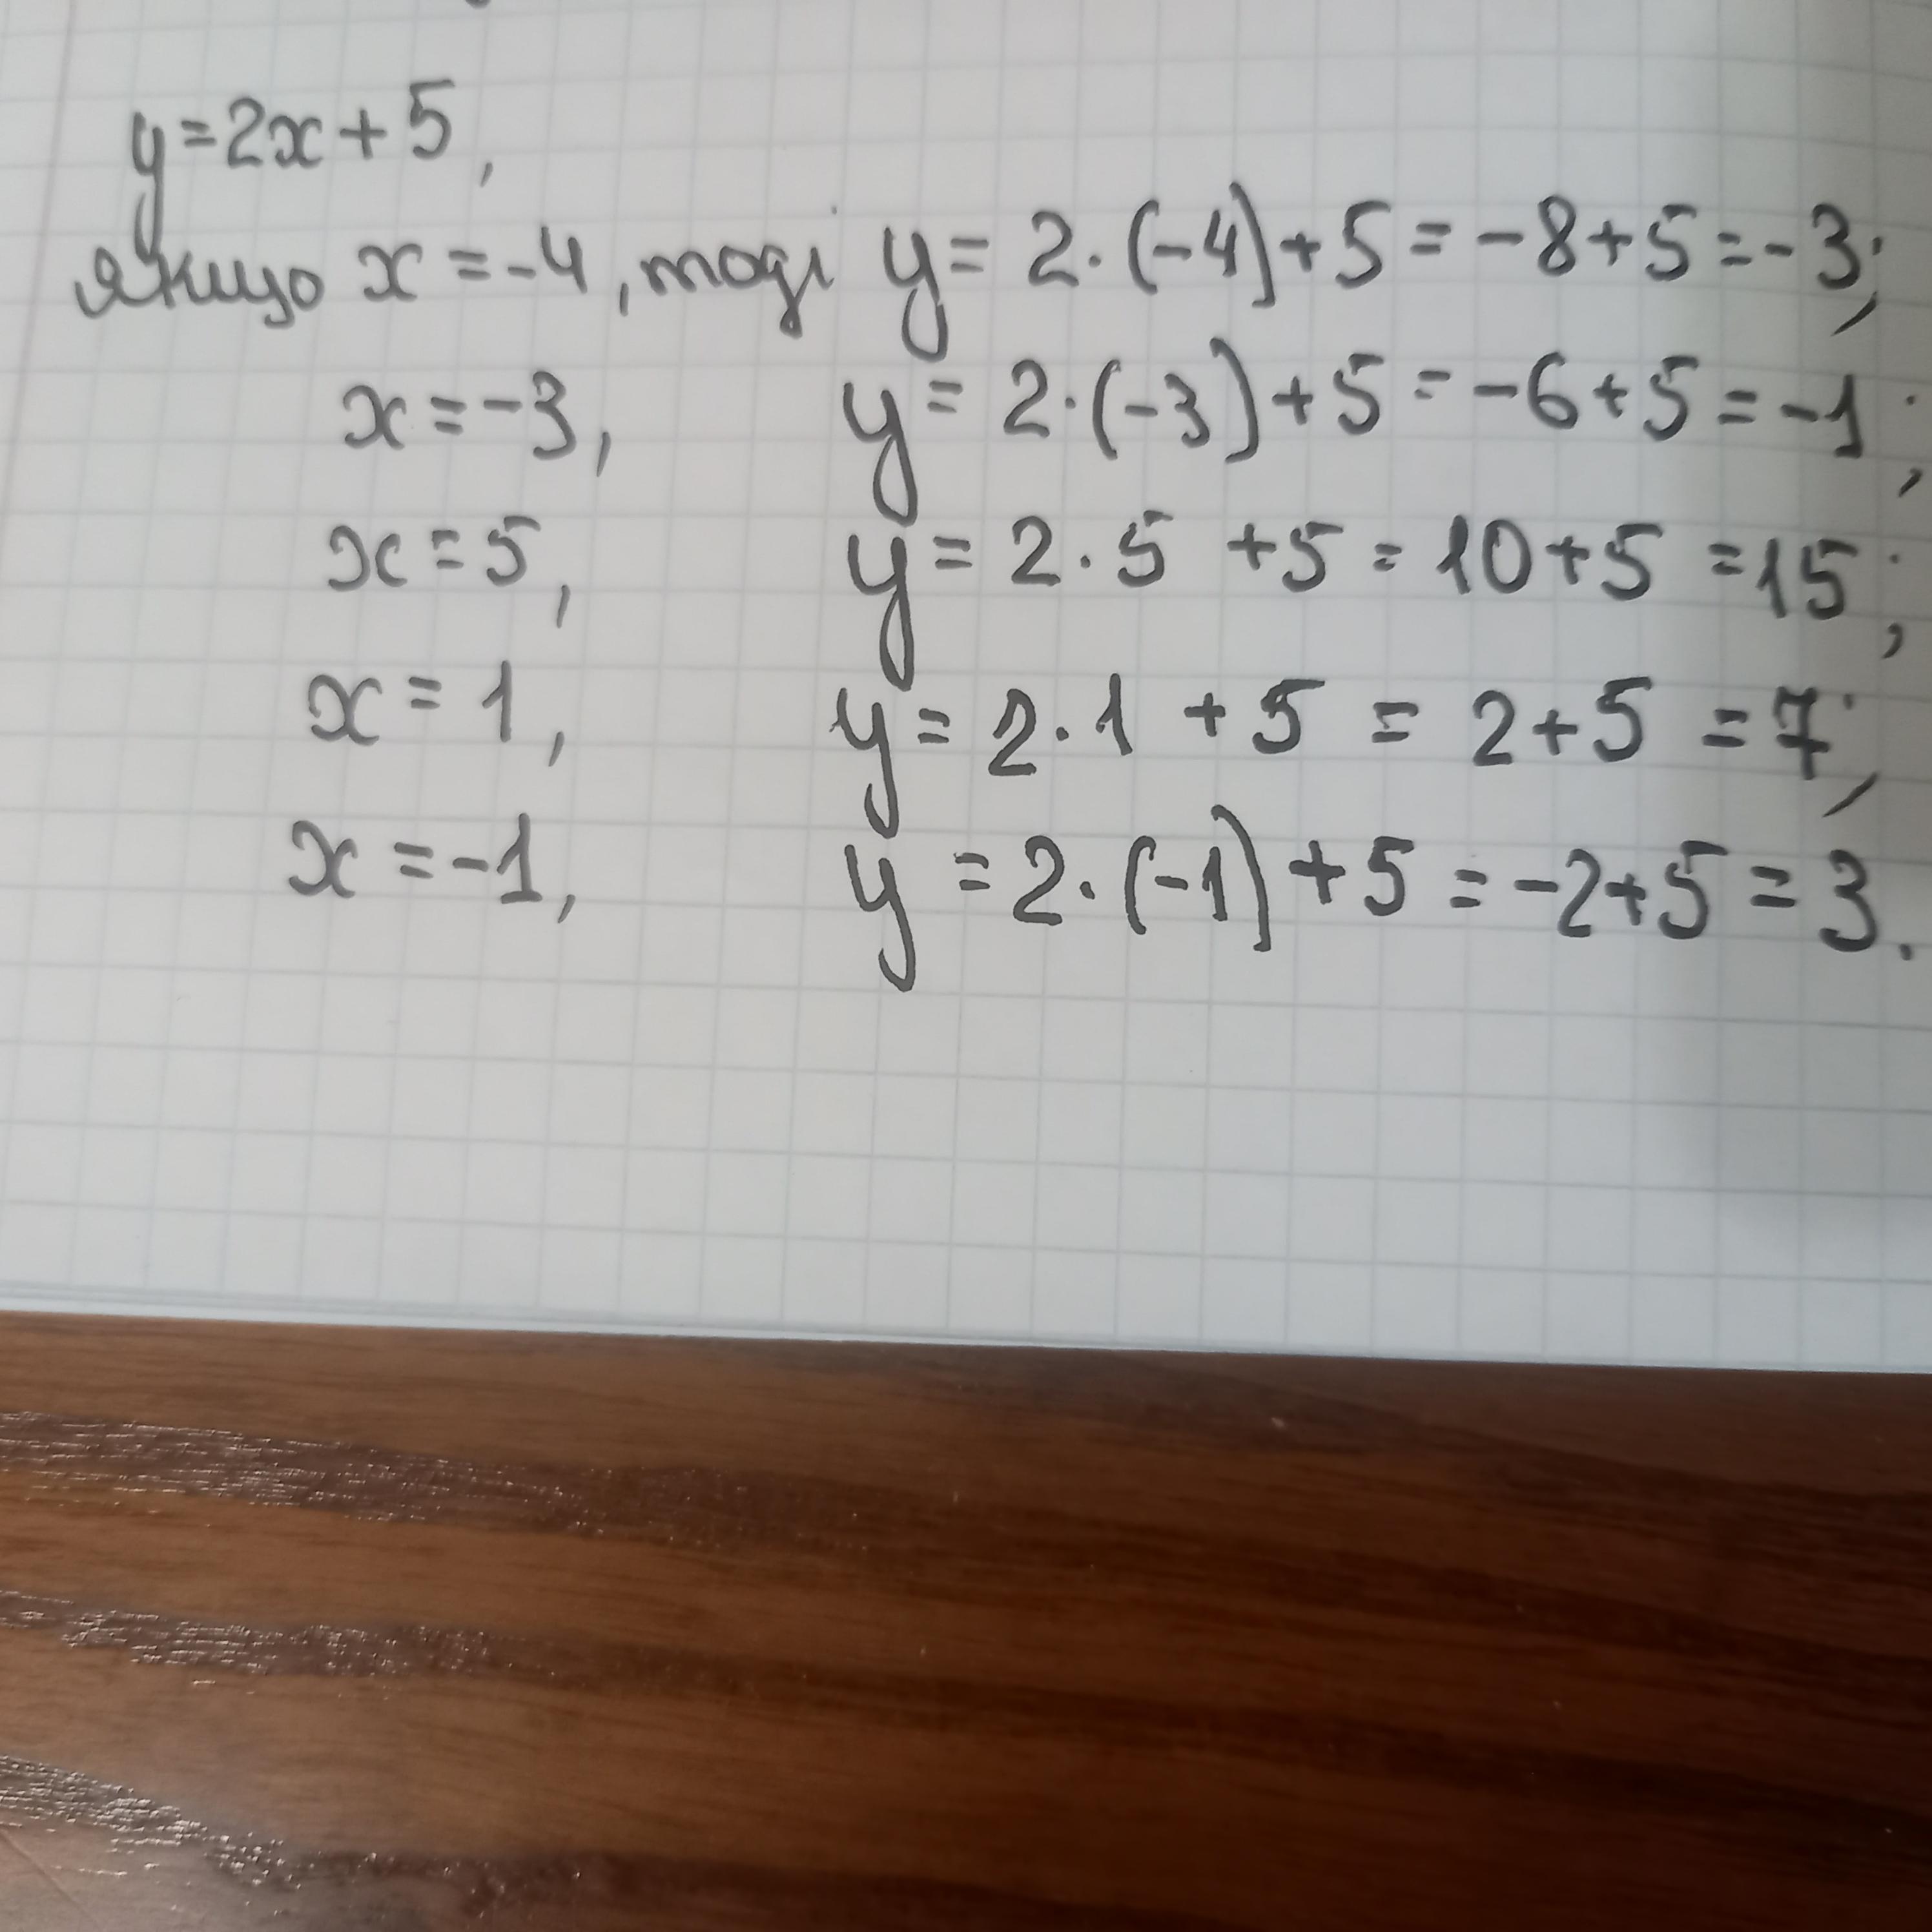 y=2x+5,
якщо x=-4, тоді y= 2·(-4)+5=-8+5=-3;
x=-3, y= 2·(-3)+5=-6+5=-1;
x=5, y=2·5+5=10+5=15;
x=1, y=2·1+5=2+5=7;
x=-1, y=2·(-1)+5=-2+5=3.